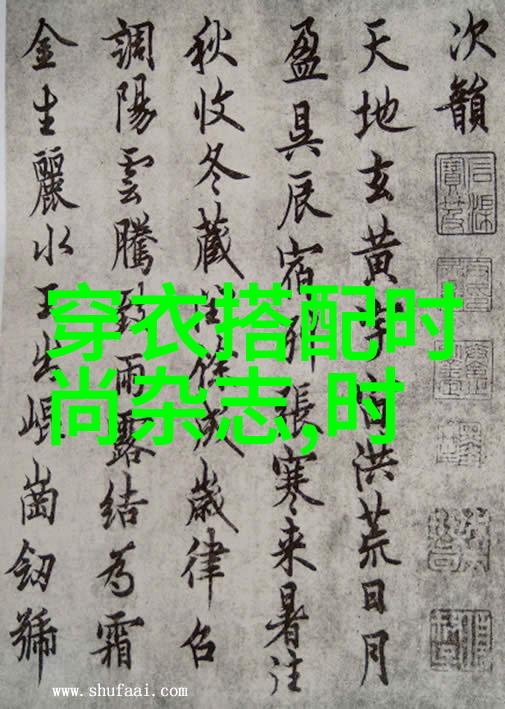 次韻
天地玄黄宇宙洪荒日月
盈昃辰宿列張寒来暑往
秋收冬藏閏餘成歲律召
調陽雲騰致雨露結為霜
金生麗水玉出崐崗劒號
穿衣搭配时
尚杂志,时
www.shufaai.com